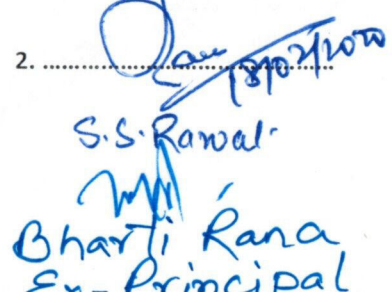 2. ........................................
18/02/2020
S.S. Rawal
Bharti Rana
Ex-Principal